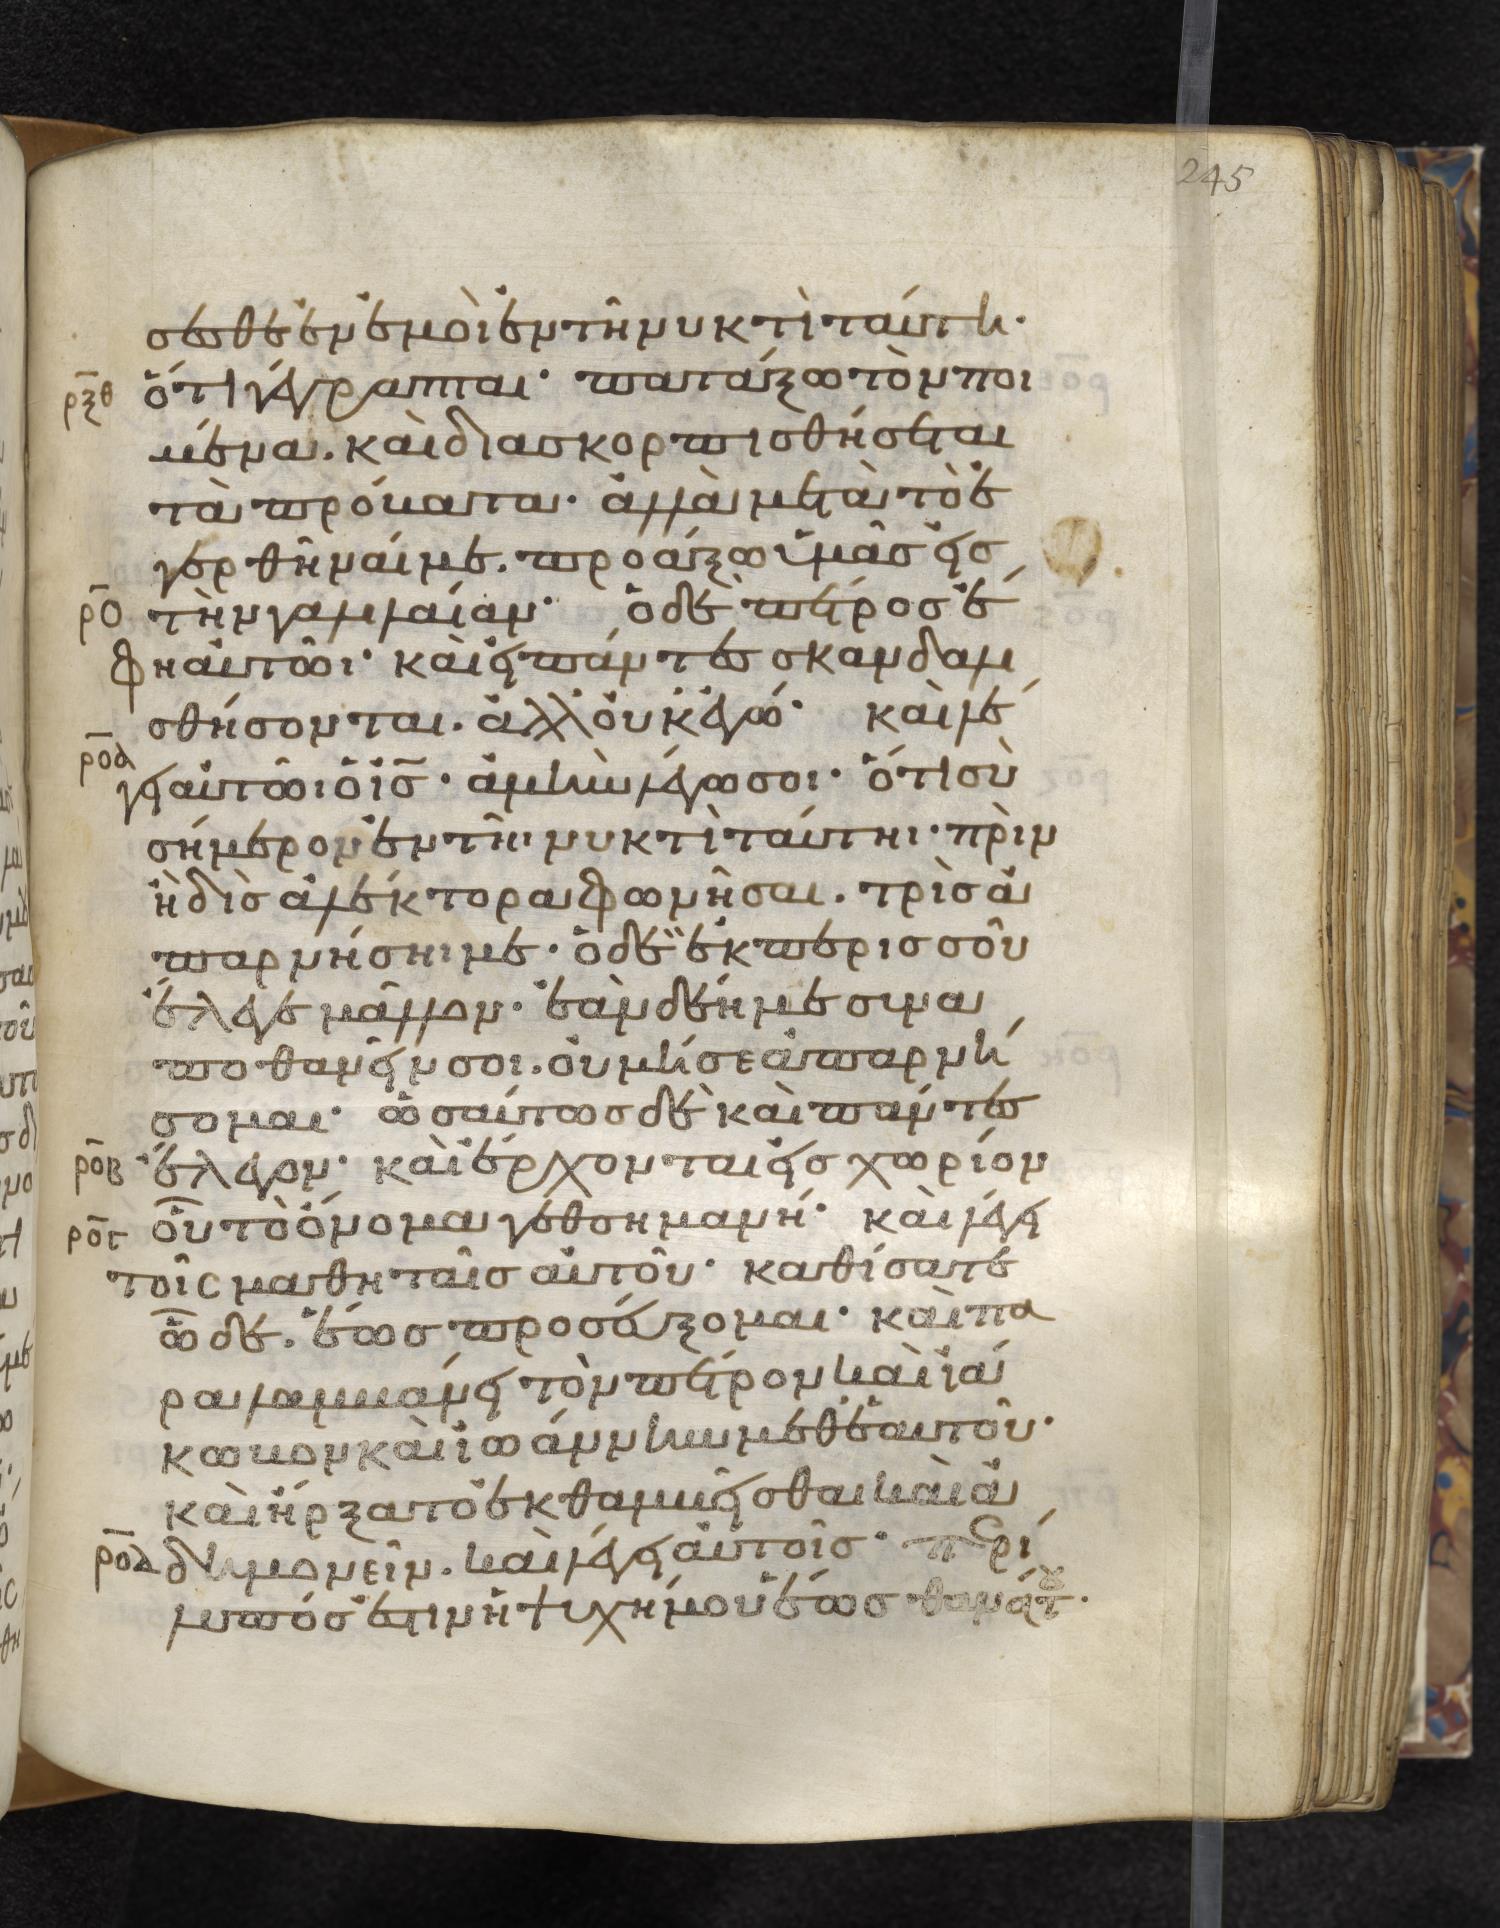 245
σεσθε ἐν ἐμοὶ ἐν τῆ νυκτὶ ταύτη·
ρξθ ὅτι γέγραπται· πατάξω τὸν ποι
μένα. καὶ διασκορπισθήσεται
τὰ πρόβατα· ἀλλὰ μετὰ τὸ ἐ
γερθῆναί με. προάξω ὑμᾶς εἰς
ρο τὴν γαλιλαίαν· ὁ δὲ πέτρος ἔ
φη αὐτῶι· καὶ εἰ πάντες σκανδαλι
σθήσονται. ἀλλ οὐκ ἐγώ· καὶ λέ
ροα γει αὐτῶι ὁ ἰς̄· ἀμὴν λέγω σοι· ὅτι σὺ
σήμερον ἐν τῆι νυκτὶ ταύτηι· πρὶν
ἢ δὶς ἀλέκτορα φωνῆσαι. τρὶς ἀ
παρνήσηι με· ὁ δὲ ἐκ περισσοῦ
ἔλεγε μᾶλλον· ἐὰν δέη με συνα
ποθανεῖν σοι. οὐ μή σε ἀπαρνή
σομαι· ὡσαύτως δὲ καὶ πάντες
ροβ ἔλεγον· καὶ ἔρχονται εἰς χωρίον
ρογ οὗ τὸ ὄνομα γεθσημανή· καὶ λέγει
τοῖς μαθηταῖς αὐτοῦ· καθίσατε
ὧδε. ἕως προσεύξομαι· καὶ πα
ραλαμβάνει τὸν πέτρον καὶ ἰά
κωβον καὶ ἰωάννην μεθ ἑαυτοῦ·
καὶ ἤρξατο ἐκθαμβεῖσθαι καὶ ἀ
ροδ δημονεῖν. καὶ λέγει αὐτοῖς· περί
λυπός ἐστιν ἡ ψυχή μου ἕως θανάτου·